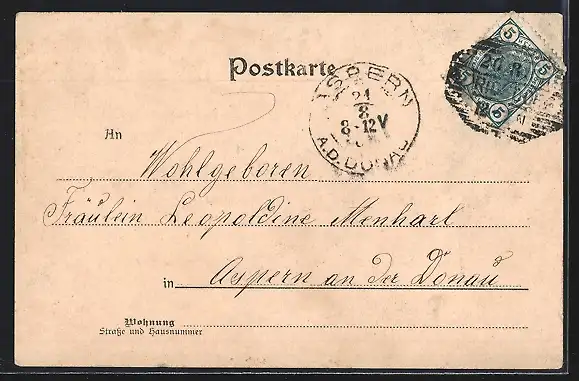 Postkarte
ASPERN
21
8
8-12V
A.D. DONAU
5
5
5
5
20.8.
An
Wohlgeboren
Fräulein Leopoldine Menharl
in Aspern an der Donau
Wohnung
Straße und Hausnummer